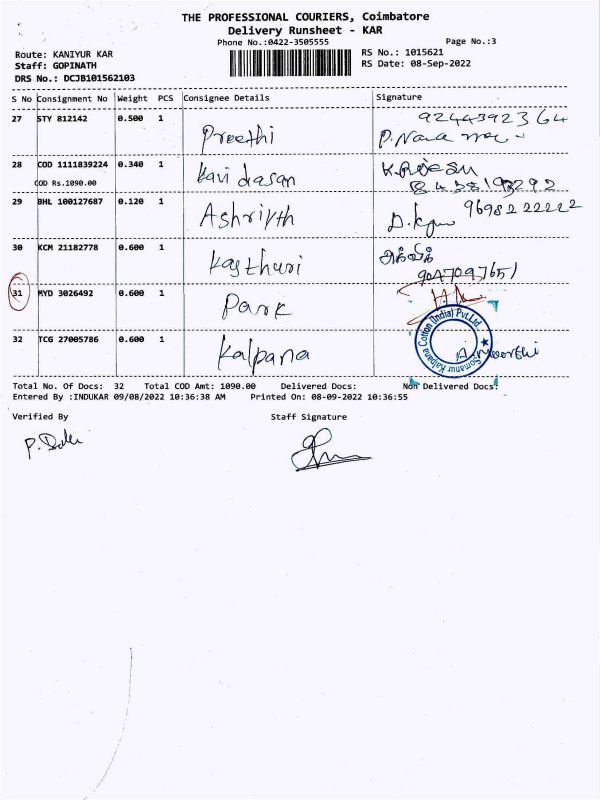 THE PROFESSIONAL COURIERS, Coimbatore
Delivery Runsheet - KAR
Phone No.:0422-3505555 Page No.:3
Route: KANIYUR KAR RS No.: 1015621
Staff: GOPINATH RS Date: 08-Sep-2022
DRS No.: DCJB101562103
S No Consignment No Weight PCS Consignee Details Signature
27 STY 812142 0.500 1 Preethi 9244392364
28 COD 1111839224 0.340 1 Kavi dasan
COD Rs.1090.00
29 BHL 100127687 0.120 1 Ashriyth 9698222222
30 KCM 21182778 0.600 1 Kasthuri
9047097651
31 MYD 3026492 0.600 1 Park
32 TCG 27005786 0.600 1 Kalpana
Somanur Kalpana Cotton (India) Pvt.Ltd.
Total No. Of Docs: 32 Total COD Amt: 1090.00 Delivered Docs: Non Delivered Docs:
Entered By :INDUKAR 09/08/2022 10:36:38 AM Printed On: 08-09-2022 10:36:55
Verified By Staff Signature